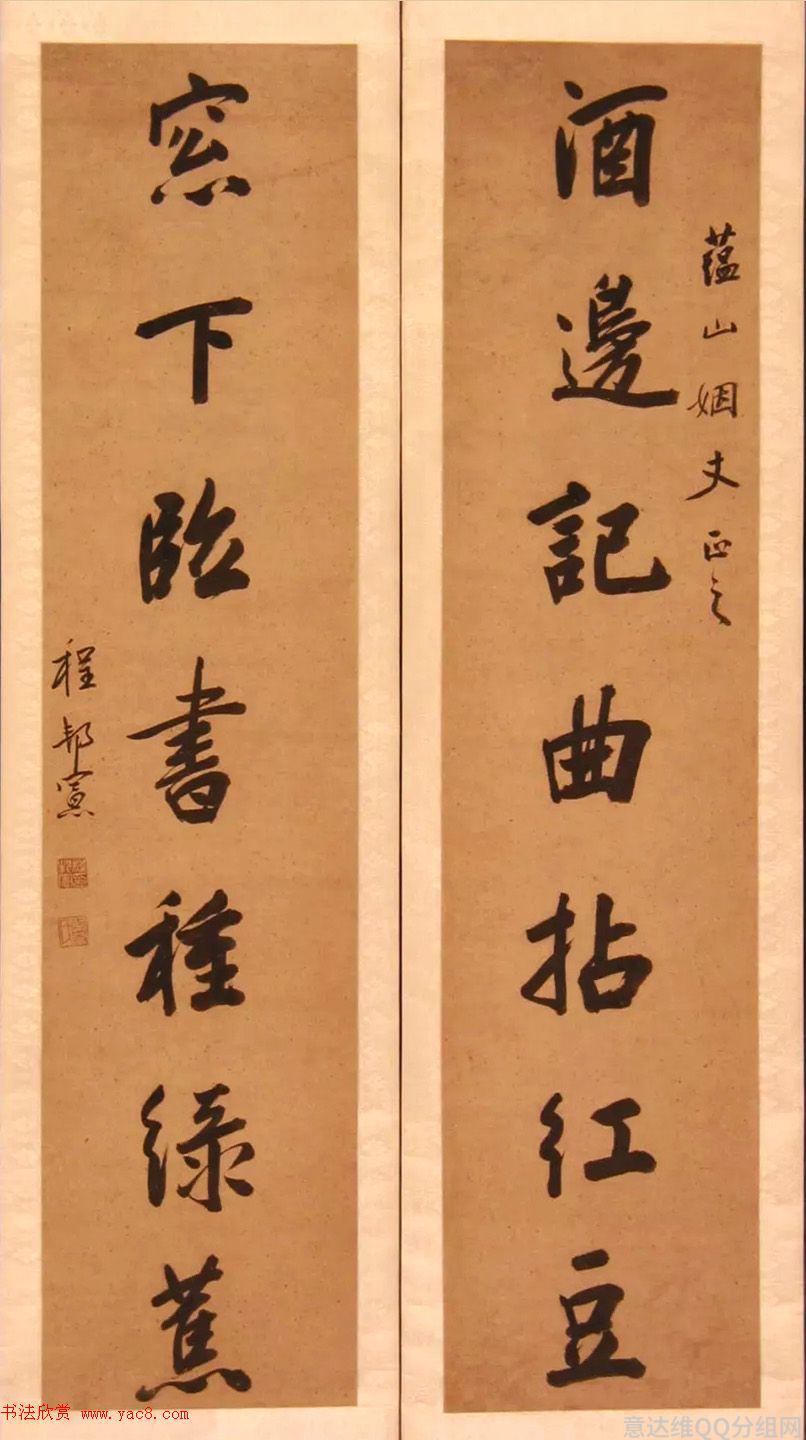 蕴山姻丈正之
酒邊記曲拈红豆
窓下臨書種绿蕉
程邦憲
书法欣赏 www.yac8.com
意达维QQ分组网